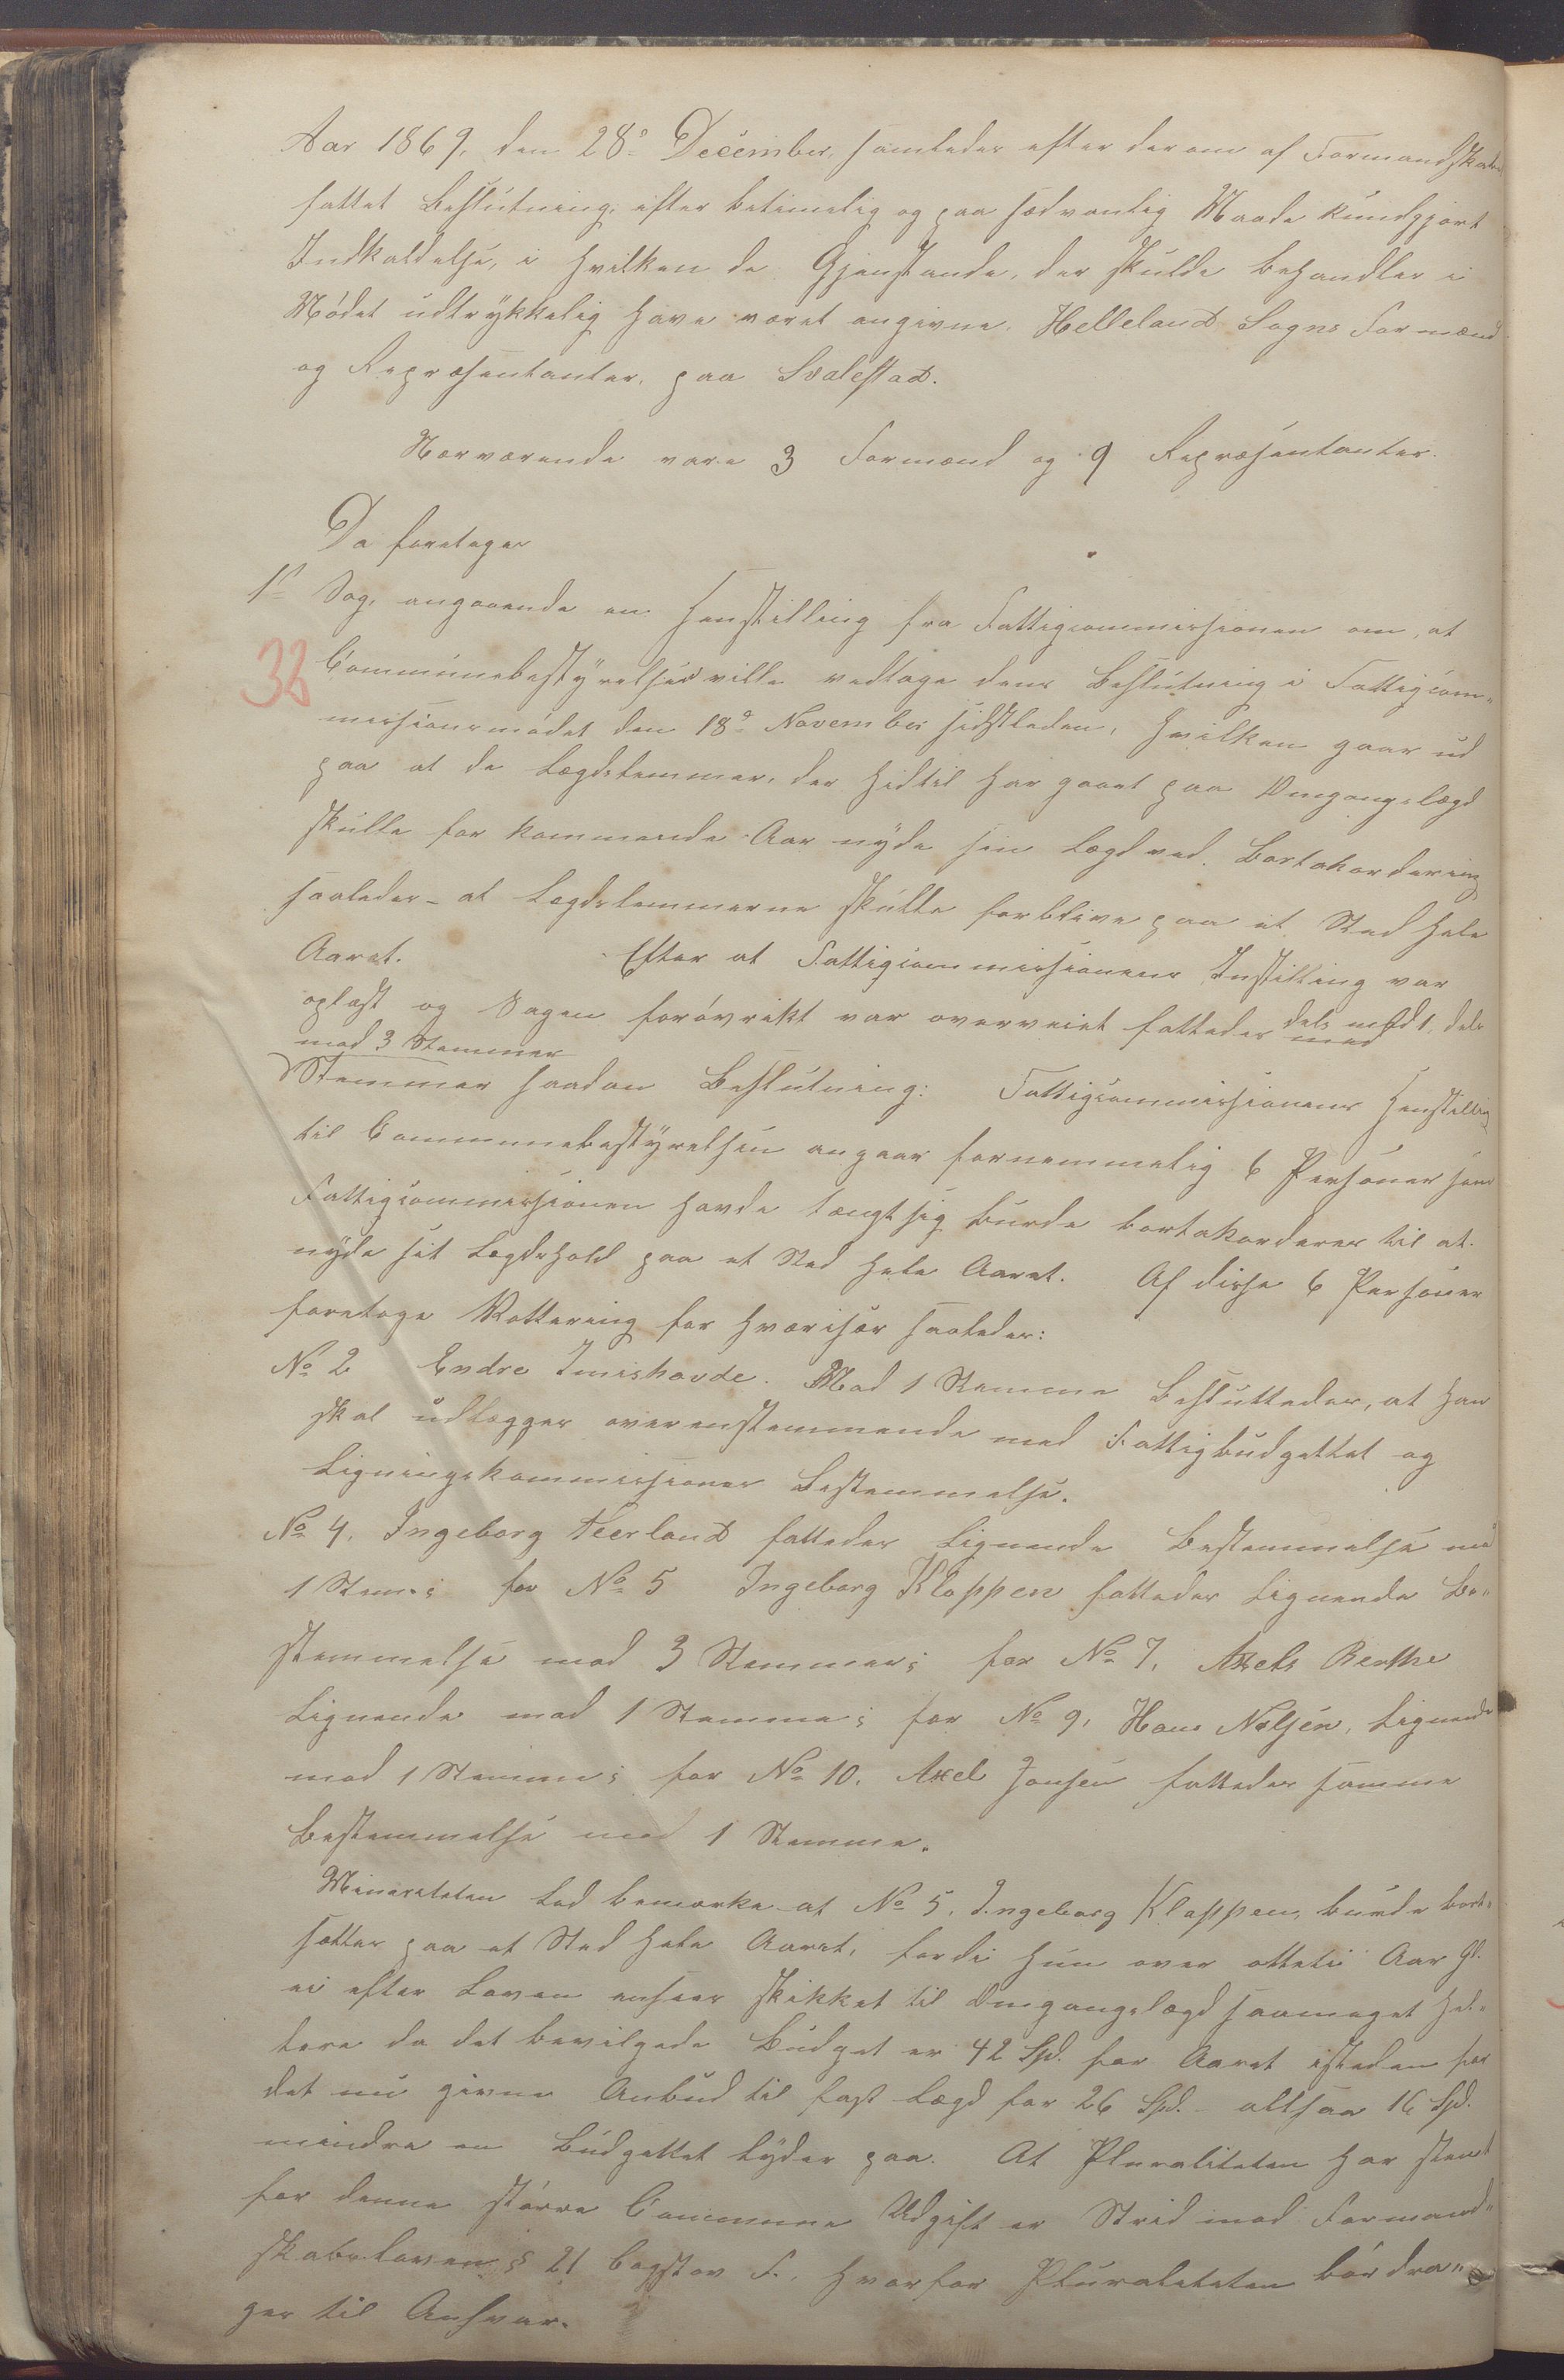 Aar 1869, den 28de December, samledes efter derom af Formandskabet
fattet Beslutning, efter betimelig og paa sedvanlig Maade kundgjort
Indkaldelse, i hvilken de Gjenstande, der skulde behandles i
Mødet udtrykkelig have været angivne, Helleland Sogns Formænd
og Repræsentanter, paa Svalestad.
Nærværende vare 3 Formænd og 9 Repræsentanter.
Da foretages
1st Sag, angaaende en Henstilling fra Fattigcommissionen om, at
38
Communebestyrelsen ville vedtage dens Beslutning i Fattigcom-
missionsmødet den 18de November sidstleden, hvilken gaar ud
paa at de Lægdslemmer, der hidtil har gaaet paa Omgangslægd
skulle for kommende Aar nyde sin Lægd ved Bortakordering
saaledes - at Lægdslemmerne skulle forblive paa et Sted hele
Aaret. Efter at Fattigcommissionens Instilling var
oplæst og Sagen forøvrikt var overveiet fattedes dels med 1, dels
med 3 Stemmer
Stemmer saadan Beslutning: Fattigcommissionens Henstilling
til Communebestyrelsen angaar fornemmelig 6 Personer som
Fattigcommissionen havde tængt sig burde bortakorderes til at
nyde sit Lægdshold paa et Sted hele Aaret. Af disse 6 Personer
foretoges Vottering for hværisær saaledes:
No 2 Endre Imishovde. Mod 1 Stemme besluttedes, at han
skal udlægges overenstemmende med Fattigbudgettet og
Ligningskommissionens Bestemmelse.
No 4, Ingeborg Neerland fattedes lignende Bestemmelse mod
1 Stem.; for No 5 Ingeborg Kloppen fattedes lignende Be-
stemmelse mod 3 Stemmer; for No 7, Axels Berthe
lignende mod 1 Stemme; for No 9, Hans Nelsen, lignende
mod 1 Stemme; for No 10, Axel Jansen fattedes samme
Bestemmelse mod 1 Stemme.
Minoriteten lod bemærke at No 5, Ingeborg Kloppen, burde bort-
sættes paa et Sted hele Aaret, fordi hun over otteti Aar gl.
ei efter Loven ansees skikket til Omgangslægd saameget hel-
lere da det bevilgede Budget er 42 Spd. for Aaret istedenfor
det nu givne Anbud til fast Lægd for 26 Spd. - altsaa 16 Spd.
mindre en Budgettet lyder paa. At Pluraliteten har stemt
for denne større Commune Udgift er Strid mod Formand-
skabsloven § 21 Bogstav F. hvorfor Pluraliteten bør dra-
ges til Ansvar.